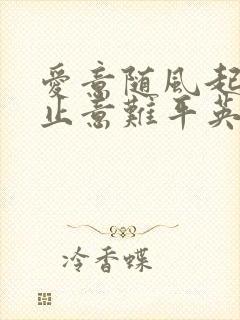 愛意随風起
止意難平英
冷香蝶